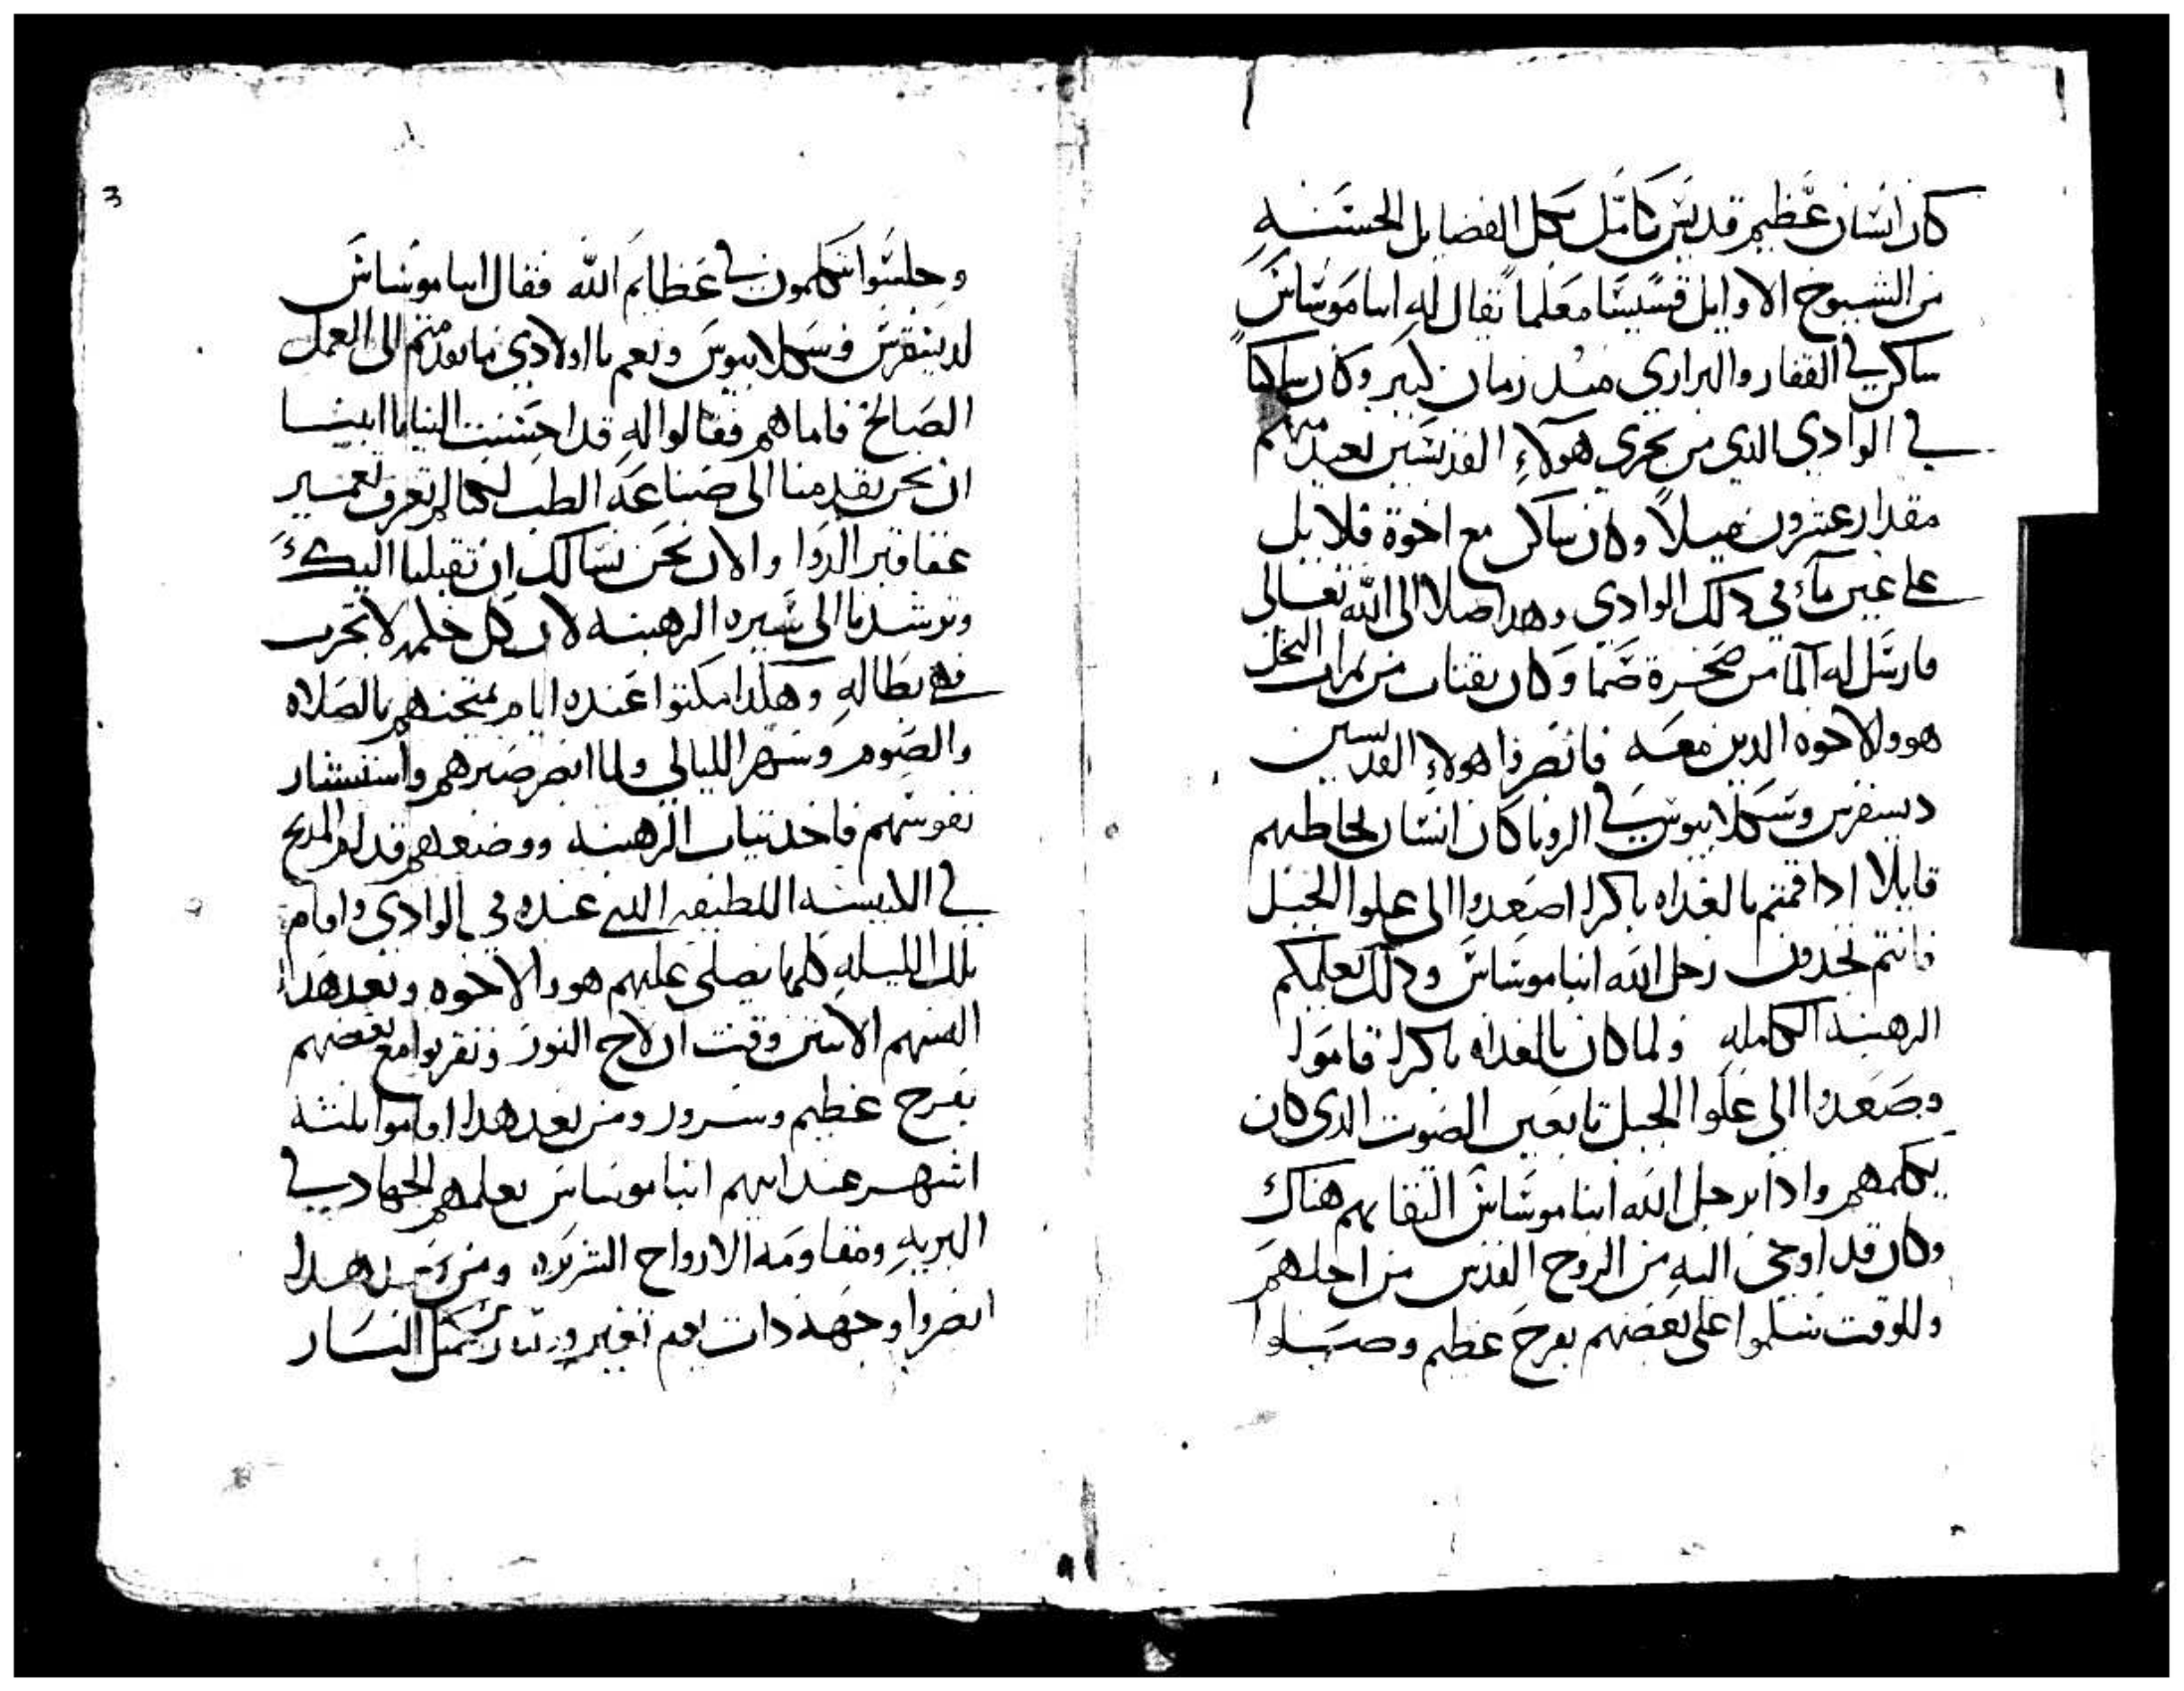 كان انسان عظيم قديس كامل بكل الفضايل الحسنه
من الشيوخ الاوايل قسيسا معلما يقال له انبا موساس
ساكن في القفار والبراري منذ زمان كبير وكان ساكنا
في الوادي الذي من بحري هولاء القديسين بعيد منهم
مقدار عشرون ميلاً وكان ساكن مع اخوة قلايل
على عين ماء في ذلك الوادي وهدا صلا الى الله تعالى
فارسل له الما من صخرة صما وكان يقتات من ثمرات النخل
هو والاخوه الدين معه فانصرفا هولاء القديسين
ديسقرس وسكلابيوس في الرويا كان انسان يخاطبهم
قايلا ادا قمتم بالغداه باكرا اصعدوا الى علوا الجبل
فانتم تجدون رجل الله انبا موساس ودلك يعلمكم
الرهبنه الكامله ولما كان بالغداه باكرا قاموا
وصعدوا الى علوا الجبل تابعين الصوت الدي كان
يكلمهم وادا برجل الله انبا موساس التقا بهم هناك
وكان قد اوحى اليه من الروح القدس من اجلهم
وللوقت سلموا على بعضهم بفرح عظيم وصلوا
3
وجلسوا يتكلمون في عظايم الله فقال انبا موساس
لديسقرس وسكلابيوس ونعم يا اولادي ما تقدمتم الى العمل
الصالح فاما هم فقالوا له قد احسنت الينا يا ابينا
ان نحن تقدمنا الى صناعة الطب لكنا لم نعرف تعمير
عقاقير الدوا والان نحن نسالك ان تقبلنا اليك
وترشدنا الى سيره الرهبنه لان كل خلمه لا تجرب
فهي بطاله وهكدا مكتوا عنده ايام يمتحنهم بالصلاه
والصوم وسهر الليالي ولما ابصر صبرهم واستبشار
نفوسهم فاخد تياب الرهبنه ووضعهم قدام المدبح
في الكنيسه اللطيفه التي عنده في الوادي واقام
تلك الليله كلها يصلي عليهم هو والاخوه وبعد هدا
البسهم الاتنين وقت ان لاح النور وتقربوا مع بعضهم
بفرح عظيم وسرور ومن بعد هدا اقاموا ثلثة
اشهر عند ابيهم انبا موساس يعلمهم الجهاد في
البريه ومقاومة الارواح الشريره ومن بعد هدا
ابصروا وجهه دات يوم تغير وصار مثل النار